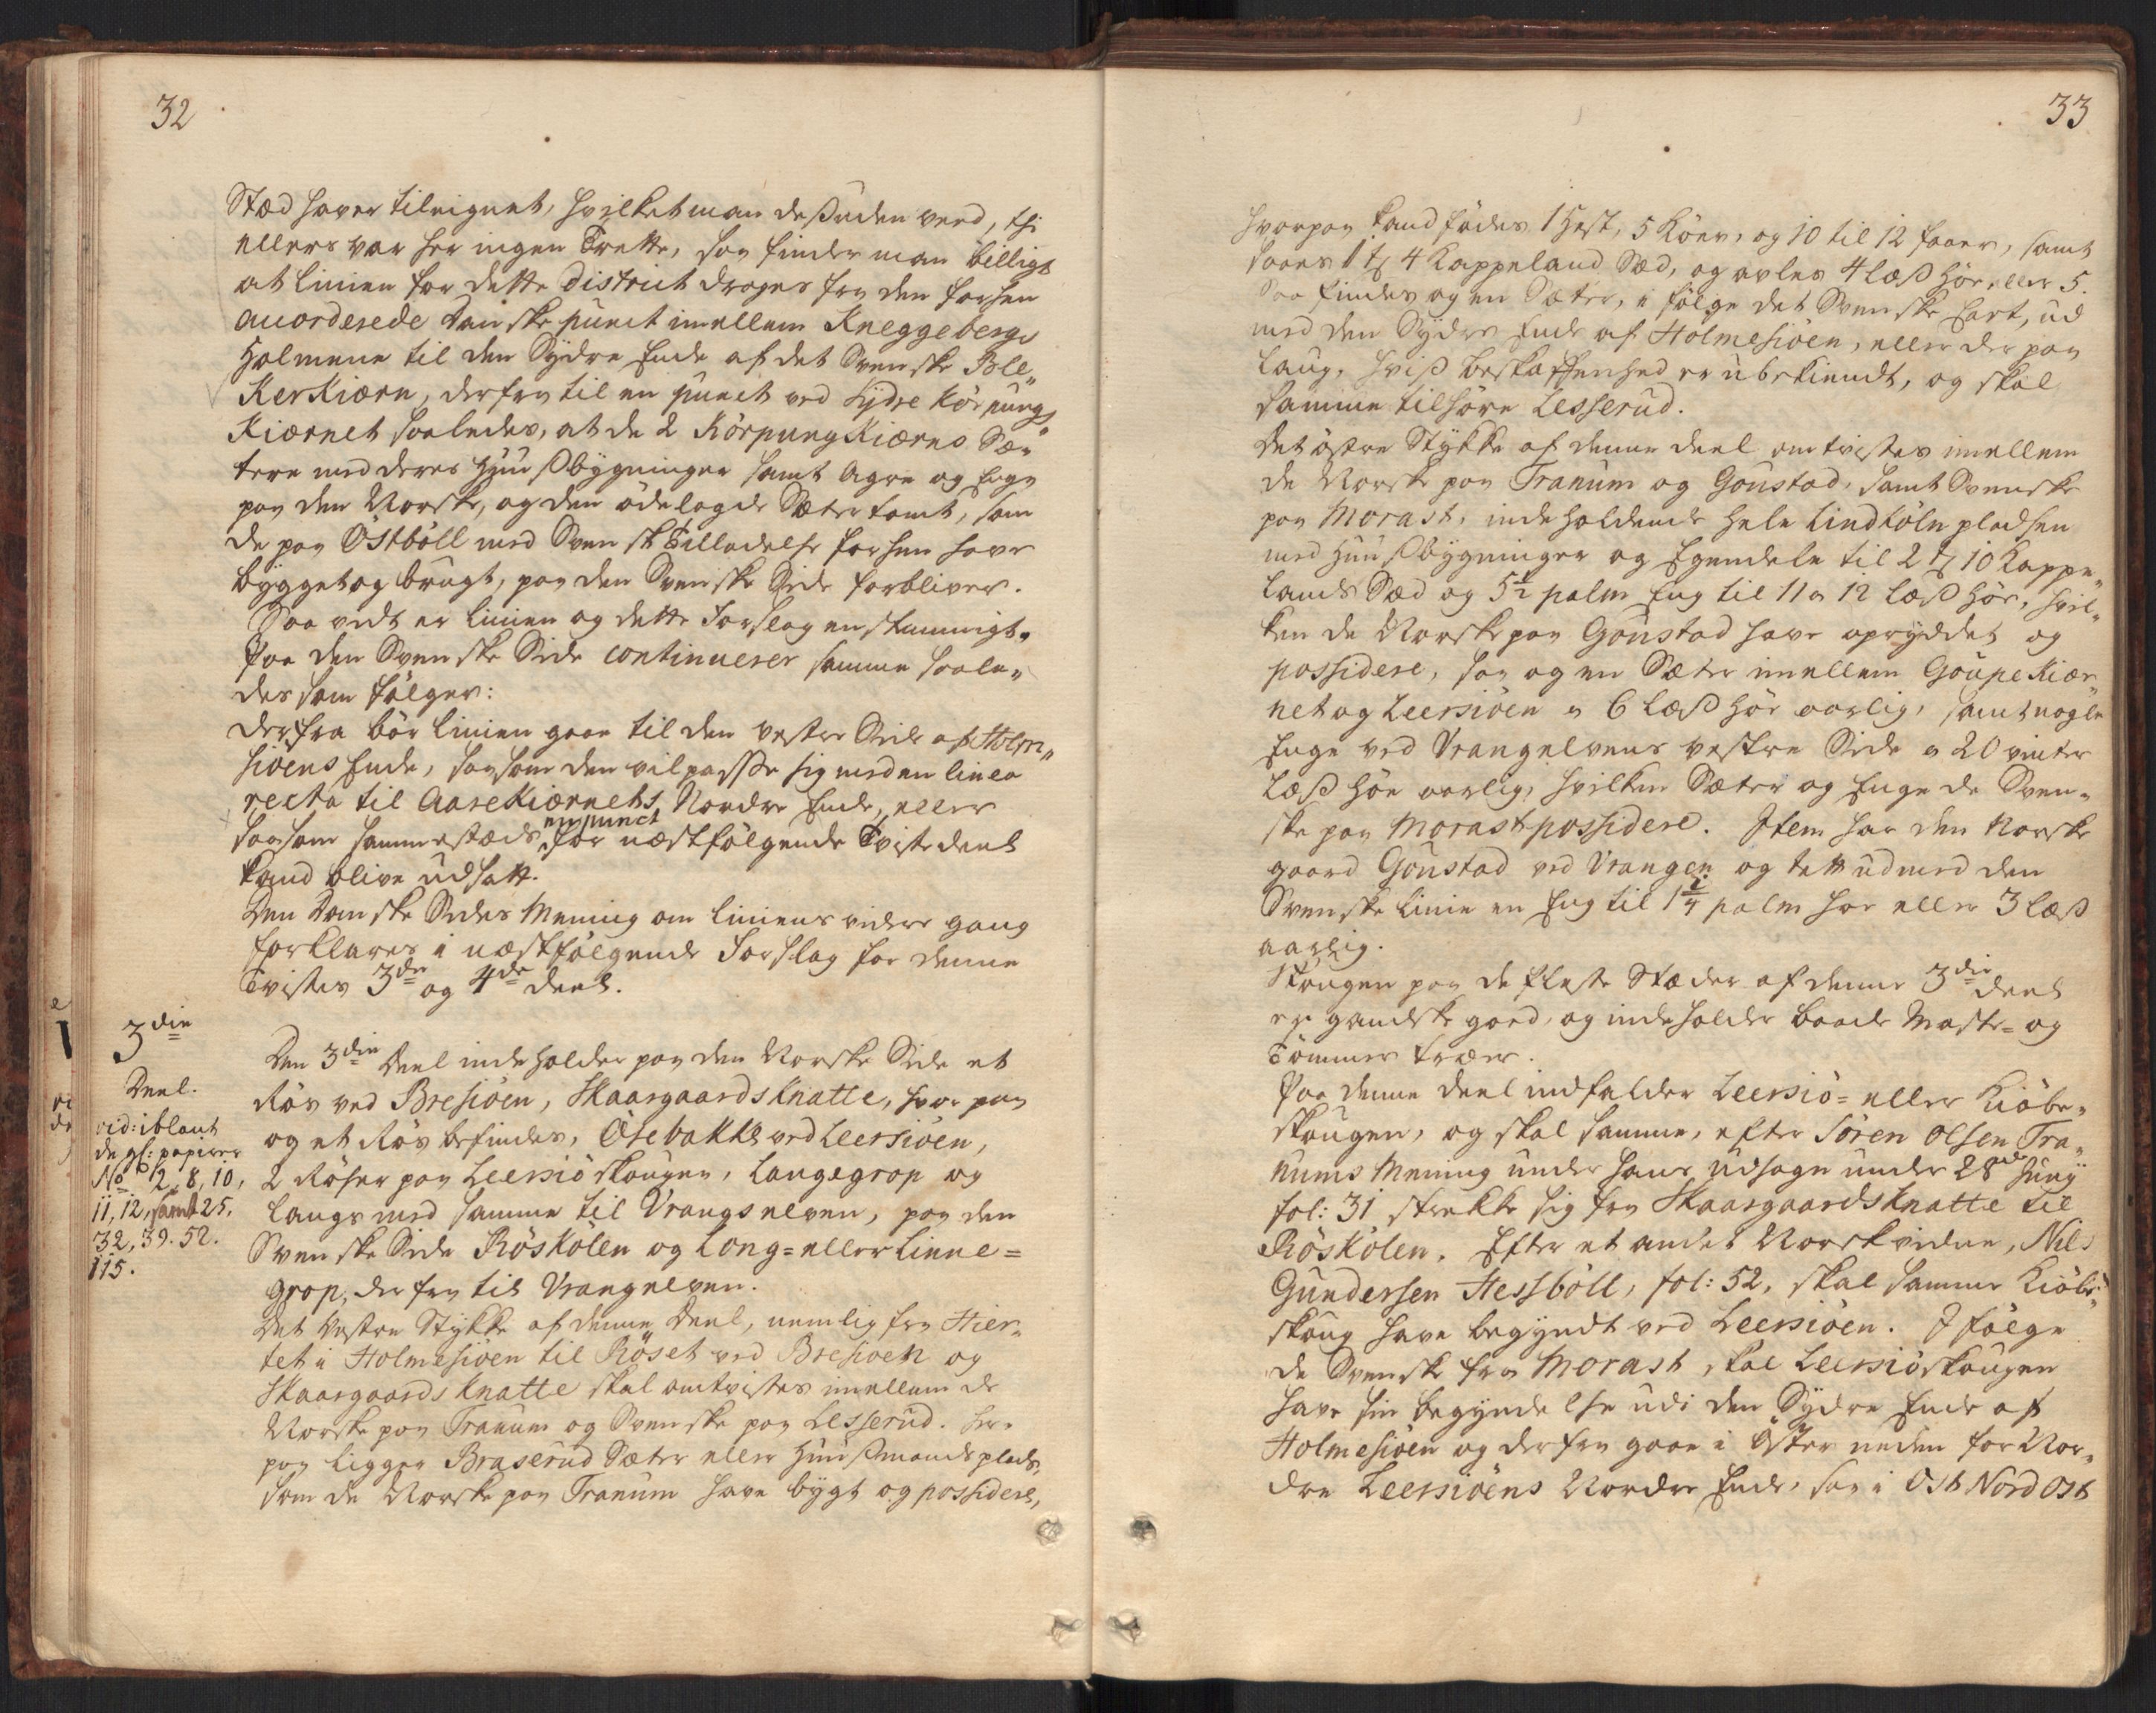 32
Stæd haver tilneignet, hvilket man desuden veed, thi
ellers var her ingen Trette, saa finder man billigt
at Linien for dette District drages fra den forhen
accorderede Danske punct imellem Kneggebergs
Holmene til den Sydre Ende af det Svenske Ble„
KerKiærn, derfra til en punct ved Sydre Körpungs
Kiærnet saaledes, at de 2 KörpungKiærns Sæ„
tere med deres Huusbygninger samt Agre og Enge
paa den Norske, og den ödelagde Sætertomt, som
de paa Östböll med Svensk Tilladelse forhen have
bygget og brugt, paa den Svenske Side forbliver.
Saa vidt er Linien og dette Forslag enstemmigt.
Paa den Svenske Side continuerer samme saale„
des som fölger:
Derfra bör Linien gaae til den vestre Side af Holm„
siöens Ende, saasom den vil passe sig med en linea
recta til AaseKiærnets Nordre Ende, eller
saasom sammestæds en punct for næstfölgende Tviste deel
kand blive udsatt.
Den Danske Sides Mening om Liniens videre gang
forklares i næstfölgende Forslag for denne
Tvistes 3de og 4de deel.
3die
Deel.
vid: iblant
de gl: papirer
No 2, 8, 10,
11, 12, samt 25.
32, 39. 52.
115.
Den 3die Deel indeholder paa den Norske Side et
Rös ved Bresiöen, Skaargaardsknatte, hvor paa
og et Rös befindes, Ösebakke ved Leersiöen,
2 Röser paa Leersiöskougen, Langegrop og
langs med samme til Vrangselven, paa den
Svenske Side Röskölen og Long= eller Linne=
grop, derfra til Vrangelven.
Det Vestre Stykke af denne Deel, nemlig fra Hier„
tet i Holmesiöen til Röset ved Bresiöen og
Skaargaardsknatte skal omtvistes imellem de
Norske paa Tranum og Svenske paa Lesserud. Her„
paa ligger Braserud Sæter eller Huusmands plads,
som de Norske paa Tranum have bygt og possiderer,
33
hvorpaa kand födes 1 Hest, 5 Köer, og 10 til 12 faaer, samt
saaes 1 tø 4 Kappeland Sæd, og avles 4 læs Höe, eller 5.
Saa findes og en Sæter, i fölge det Svenske Cart, ud
med den Sydre Ende af Holmesiöen, eller der paa
laug, hvis beskaffenhed er ubekiendt, og skal
samme tilhöre Lesserud.
Det östre Stykke af denne deel omtvistes imellem
de Norske paa Tranum og Goustad, samt Svenske
paa Morast, indeholdende hele Lindköln pladsen
med Huusbygninger og Egendele til 2 tø 10 Kappe„
lands Sæd og 5½ palm Eng til 11 a 12 læs Höe, hvil„
ken de Norske paa Goustad have opryddet og
possidere, saa og en Sæter imellem GoupeKiær„
net og Leersiöen a 6 læs Höe aarlig, samt nogle
Enge ved Vrangelvens vestre Side a 20 vinter
Læs Höe aarlig, hvilken Sæter og Enge de Sven„
ske paa Morast possidere. Item har den Norske
gaard Goustad ved Vrangen og tett ud med den
Svenske Linie en Eng til 1¼ palm hör eller 3 læs
aarlig.
Skougen paa de fleste Stæder af denne 3die deel
er gandske goed, og indeholder baade Maste= og
Tömmer træer.
Paa denne deel indfalder Leersiö= eller Kiöbe„
skougen, og skal samme, efter Sören Olsen Tra„
nums Mening under hans Udsagn under 28de Juny
fol: 31 strekke sig fra Skaargaardsknatte til
Röskölen. Efter et andet Norsk vidne, Nils
Gundersen Hessböll, fol: 52, skal samme Kiöbe„
skoug have begyndt ved Leersiöen. I fölge
de Svenske fra Morast, skal Leersiöskougen
have sin begyndelse udi den Sydre Ende af
Holmesiöen og derfra gaae i Öster neden for Nor„
dre Leersiöens Nordre Ende, saa i Ost Nord Ost